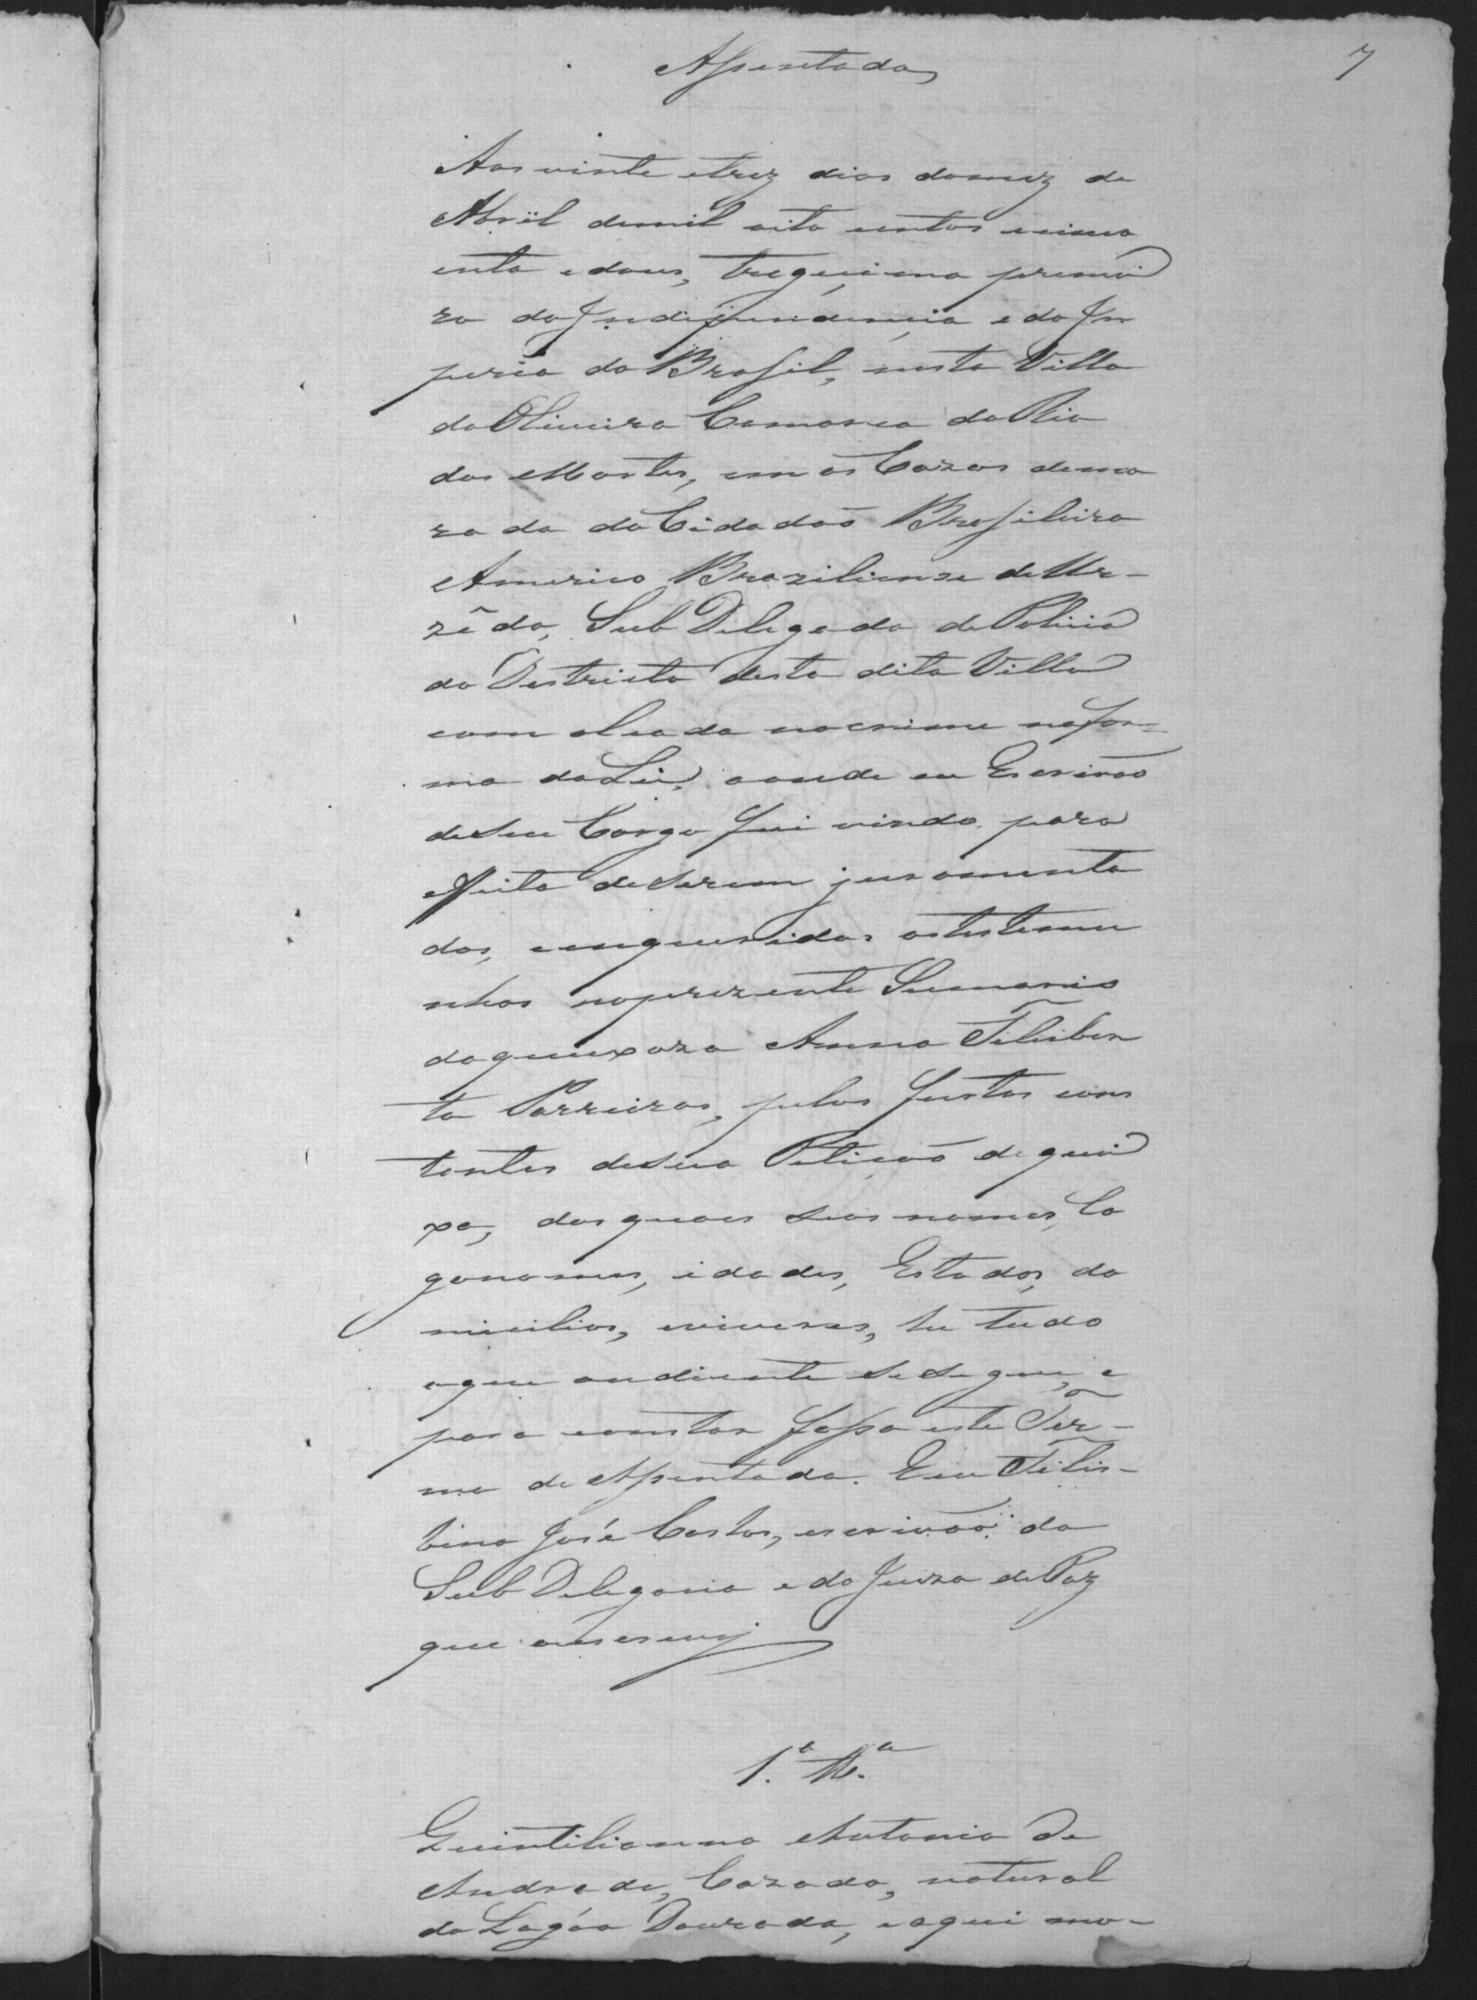 Assentada
7
Aos vinte etrez dias domez de
Abril demil oito centos ecinco
enta edous, tregecimo primei
ro da Indipendencia e do Im
perio do Brasil, nesta Villa
da Oliveira Comarca do Rio
das Mortes, em as Cazas demo
ra da do Cidadaõ Brasileiro
Americo Braziliense de Ur-
zêda, Sub Delegado de Policia
do Destricto desta dita Villa
com alsada nocrime nafor=
ma da Lei, aonde eu Escrivaõ
deseu Cargo fui vindo para
effeito deserem juramenta
das, e enqueridas astestemu
nhas noprezente Sumario
daqueixoza Anna Feliber
ta Parreiras, pelos factos cons
tantes desua Peticaõ de quei
xa, das quaes seos nomes, Co
gonomes, idades, Estados, do
micilios, eviveres, he tudo
oque andiente sesegue, e
para constar fasso este Ter-
mo de Assentada. Eeu Felis-
bino José Costas, escrivaõ da
Sub Delegacia e do Juizo de Paz
que oescrevy
1.ª Tt.ª
Quintilianno Antonio de
Andrade, Cazado, natural
da Lagôa Dourada, eaqui mo-